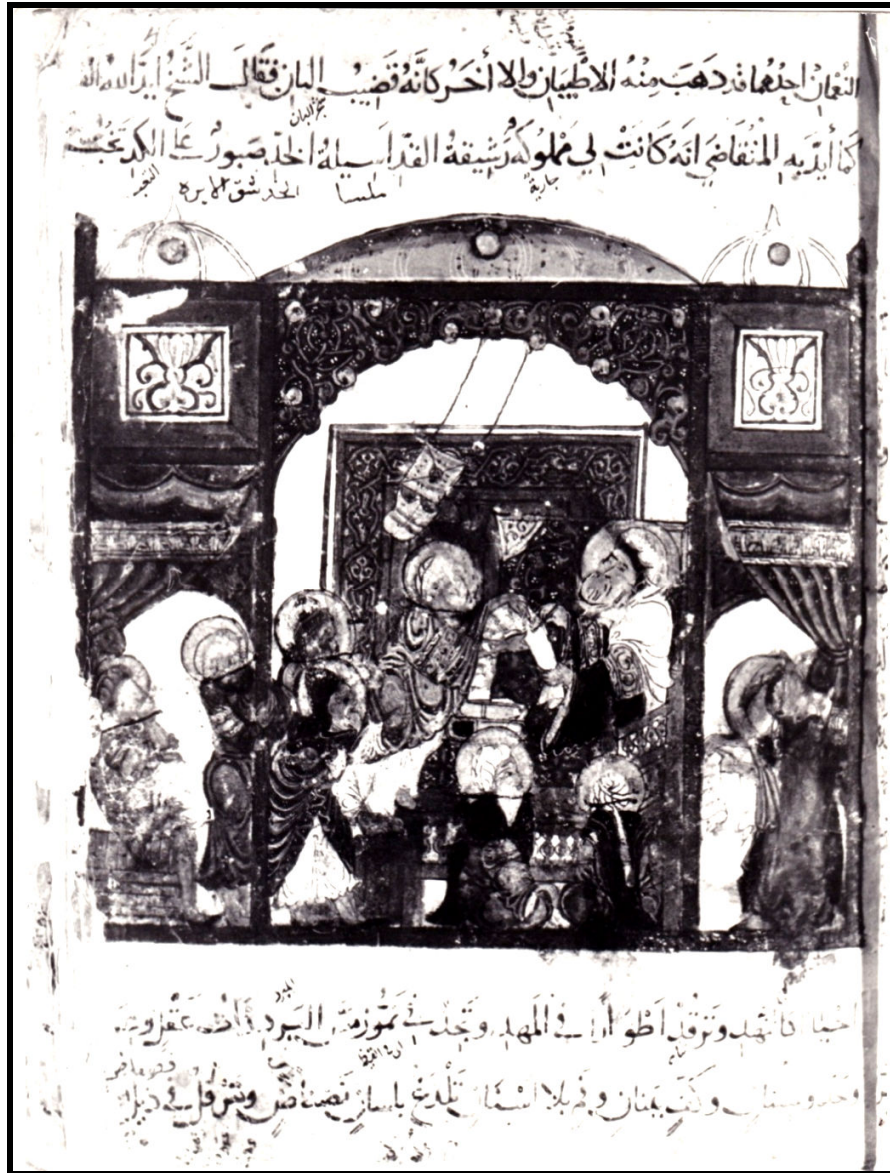 النعمان احدهما قد ذهب منه الاطيبان والاأخر كأنه قضيب البان فقال الشيخ ايد الله
كما أيد به المتقاضي انه كانت لي مملوكة رشيقة القد اسيلة الخد صبور على الكد تخب
جارية ملسا الخد شق الابره
احيانا كالنهد وترقد اطوارا في المهد وتجد في تموز مس البرد ذات عقل وعنان
وحد وسنان وكف ببنان وفم بلا اسنان تلدغ بلسان نضناض وترفل في ذيل